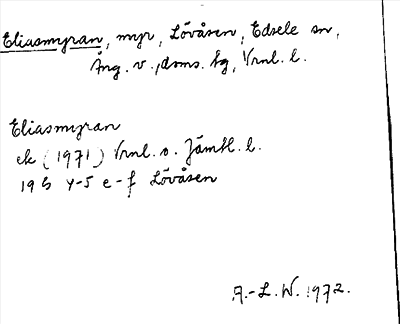 Eliasmyran, myr, Lövåsen, Edsele sn,
Ång. v., doms. tg, Vrnl. l.
Eliasmyran
ek (1971) Vrnl. o. Jämtl. l.
19G 4-5 e-f Lövåsen
A.-L. W. 1972.